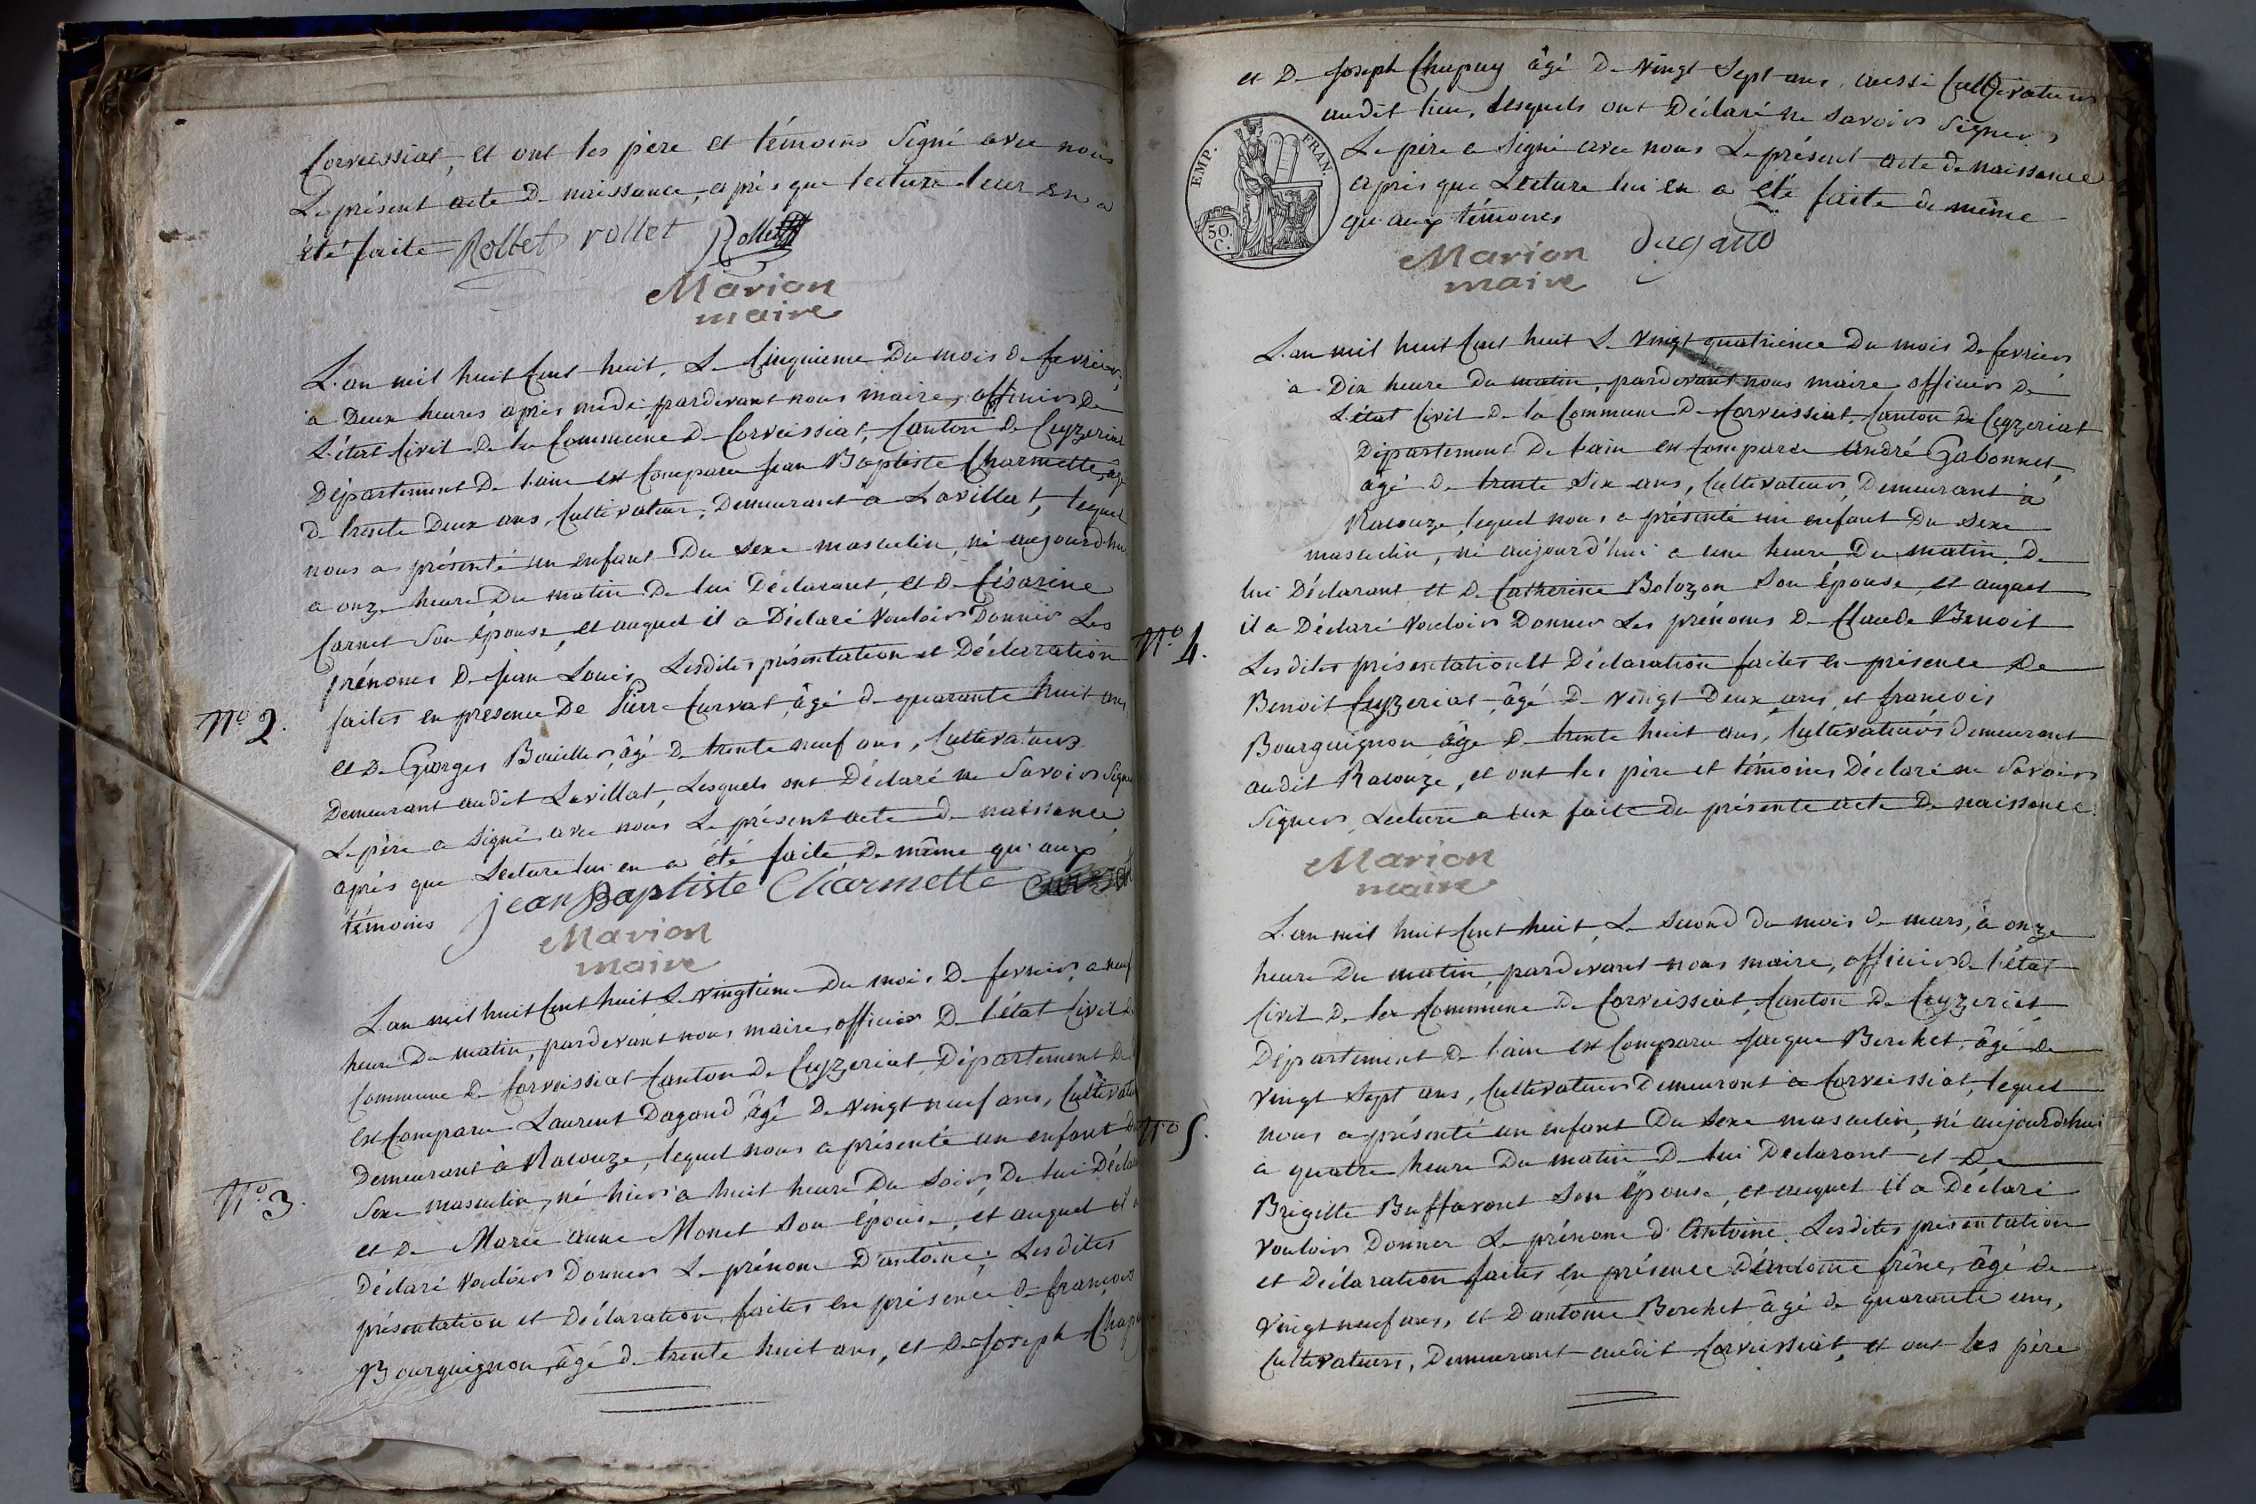 Corveissiat, et ont les père et témoins signé avec nous
Le présent acte de naissance, après que lecture leur en a
été faite Rollet rollet Rollet
Marion
maire
L'an mil huit cent huit, Le cinquieme Du mois de fevrier,
a Deux heures après midi pardevant nous maire, officier De
L'état civil de la Commune De Corveissiat, Canton de Ceyzeriat
Département De l'ain est comparu Jean Baptiste Charmette, âgé
de trente Deux ans, Cultivateur, Demeurant à Lavillat, lequel
nous a présenté un enfant Du sexe masculin, né aujourd'hui
a onze heure Du matin De lui Déclarant, et De Césarine
Carnet son épouse, et auquel il a Déclaré vouloir Donner Les
prénoms De Jean Louis, Lesdites présentation et Déclaration
N.o 2.
faites en présence De Pierre Curvat, âgé de quarante huit ans,
et De Georges Bouiller, âgé De trente neuf ans, Cultivateurs
Demeurant audit Lavillat, Lesquels ont Déclaré ne savoir signer
Le père a signé avec nous Le présent acte De naissance
après que Lecture lui en a été faite De même qu'aux
témoins Jean Baptiste Charmette
Marion
maire
L'an mil huit cent huit Le vingtieme Du mois De fevrier, a neuf
heure Du matin, pardevant nous maire, officier De l'état civil De
Commune De Corveissiat Canton De Ceyzeriat, Département De
est comparu Laurent Dagand âgé De vingt neuf ans, Cultivateur
Demeurant à Racouze, lequel nous a présenté un enfant Du
N.o 3.
sexe masculin, né hier a huit heure Du soir, De lui Déclarant
et De Marie anne Monet son épouse, et auquel il a
Déclaré vouloir Donner Le prénom D'antoine; Lesdites
présentation et Déclaration faites en présence De françois
Bourguignon, âgé De trente huit ans, et De Joseph Chapuy
et De Joseph Chapuy âgé De vingt sept ans, aussi Cultivateurs
audit lieu, Lesquels ont Déclaré ne savoir signer,
EMP. FRAN.
50.
C.
Le père a signé avec nous Le présent acte de naissance
après que Lecture lui en a été faite de même
qu'aux témoins
Marion dagand
maire
L'an mil huit cent huit Le vingt quatrieme Du mois De fevrier
a Dix heure Du matin, pardevant nous maire officier De
L'état Civil De la Commune De Corveissiat, Canton de Ceyzeriat
Département De l'ain est comparu André Gabonnet,
âgé De trente six ans, Cultivateur, Demeurant a
Racouze, lequel nous a présenté un enfant Du sexe
masculin, né aujourd'hui a une heure Du matin De
lui Déclarant et De Catherine Bolozon son épouse, et auquel
il a Déclaré vouloir Donner Les prénoms De Claude Benoit
N.o 4.
Lesdites présentation et Déclaration faites en présence De
Benoit Ceyzeriat, âgé De vingt Deux ans, et françois
Bourguignon âgé De trente huit ans, Cultivateurs demeurant
audit Racouze, et ont les père et témoins Déclaré ne savoir
signer, Lecture a eux faite du présente acte De naissance.
Marion
maire
L'an mil huit cent huit, Le second du mois de mars, a onze
heure Du matin, pardevant nous maire, officier de l'état
Civil De la Commune De Corveissiat, Canton De Ceyzeriat,
Département De l'ain est comparu Jacque Berchet, âgé de
vingt sept ans, Cultivateur Demeurant a Corveissiat, lequel
N.o 5.
nous a présenté un enfant Du sexe masculin, né aujourd'hui
a quatre heure Du matin De lui Declarant et De
Brigitte Buffavent son épouse, et auquel il a Déclaré
vouloir Donner Le prénom d'Antoine. Lesdites présentation
et Déclaration faites en présence D'Antoine frêne, âgé de
vingt neuf ans, et D'antoine Berchet âgé de quarante ans,
Cultivateurs, Demeurant audit Corveissiat, et ont les père